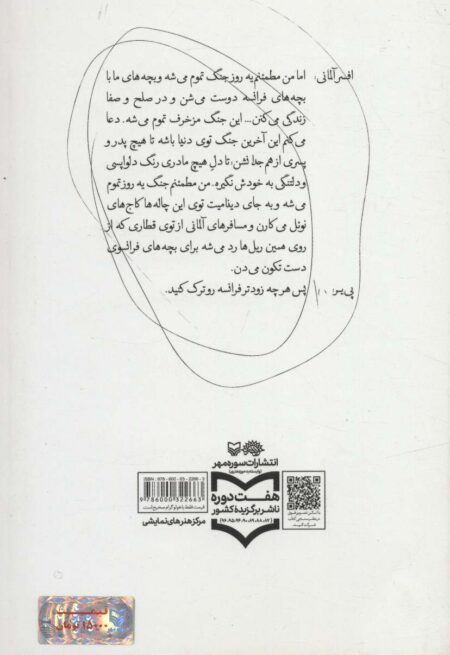 افسر آلمانی: اما من مطمئنم یه روز جنگ تموم می‌شه و بچه‌های ما با
بچه‌های فرانسه دوست می‌شن و در صلح و صفا
زندگی می‌کنن... این جنگ مزخرف تموم می‌شه. دعا
می‌کنم این آخرین جنگ توی دنیا باشه تا هیچ پدر و
پسری از هم جدا نشن؛ تا دل هیچ مادری رنگ دلواپسی
و دلتنگی به خودش نگیره. من مطمئنم جنگ یه روز تموم
می‌شه و به جای دینامیت توی این چاله‌ها کاج‌های
نوئل می‌کارن و مسافرهای آلمانی از توی قطاری که از
روی همین ریل‌ها رد می‌شه برای بچه‌های فرانسوی
دست تکون می‌دن.
پی‌یر: پس هر چه زودتر فرانسه رو ترک کنید.
انتشارات سوره مهر
هفت دوره
ناشر برگزیده کشور
ISBN: 978-600-03-2266-3
9 786000 322663
قیمت فقط با هولوگرام صحیح است
مرکز هنرهای نمایشی
قیمت
۱۵۰۰۰ تومان